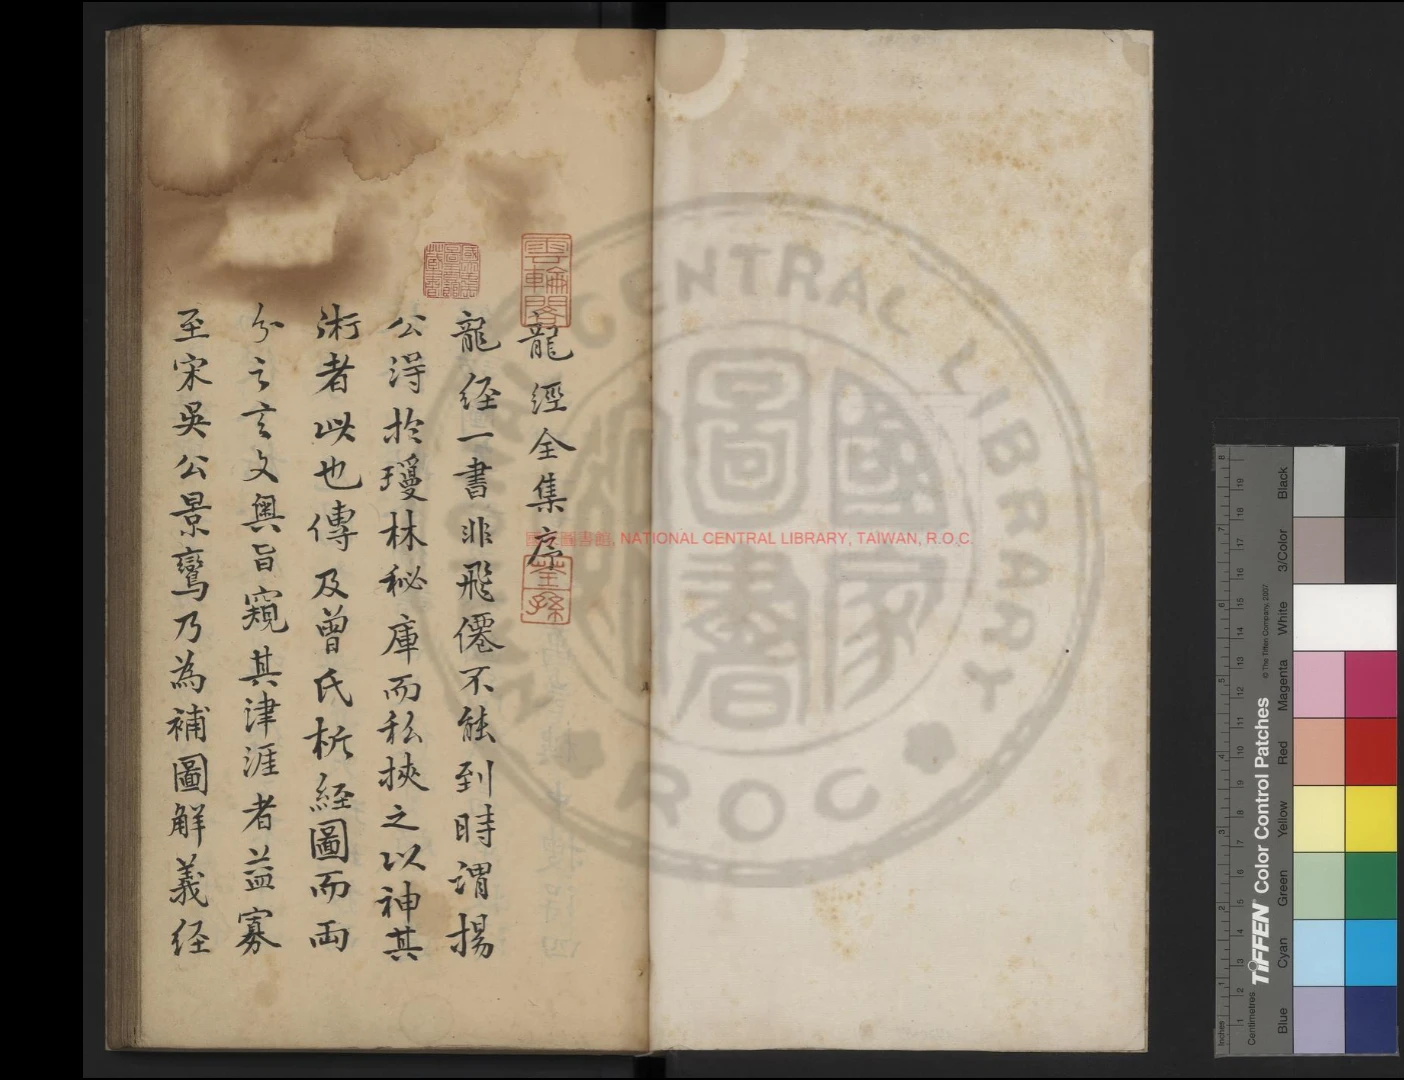 龍經全集序
龍經一書非飛僊不能到時謂揚
公得於瓊林秘庫而私挾之以神其
術者此也傳及曾氏析經圖而兩
分之言文奧旨窺其津涯者益寡
至宋吳公景鸞乃為補圖解義经
雲輪閣
荃孫
國家圖書館藏書
國家圖書館, NATIONAL CENTRAL LIBRARY, TAIWAN, R.O.C.
CENTRAL LIBRARY
ROC
國家圖書
TIFFEN Color Control Patches
© The Tiffen Company, 2007
Inches
Centimetres
Blue
Cyan
Green
Yellow
Red
Magenta
White
3/Color
Black